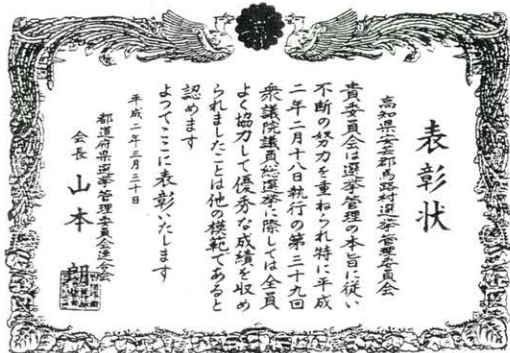 表彰状
高知県安芸郡馬路村選挙管理委員会
貴委員会は選挙管理の本旨に従い
不断の努力を重ねられ特に平成
二年二月十八日執行の第三十九回
衆議院議員総選挙に際しては全員
よく協力して優秀な成績を収め
られましたことは他の模範であると
認めます
よってここに表彰いたします
平成二年三月二十日
都道府県選挙管理委員会連合会
会長 山本 朗